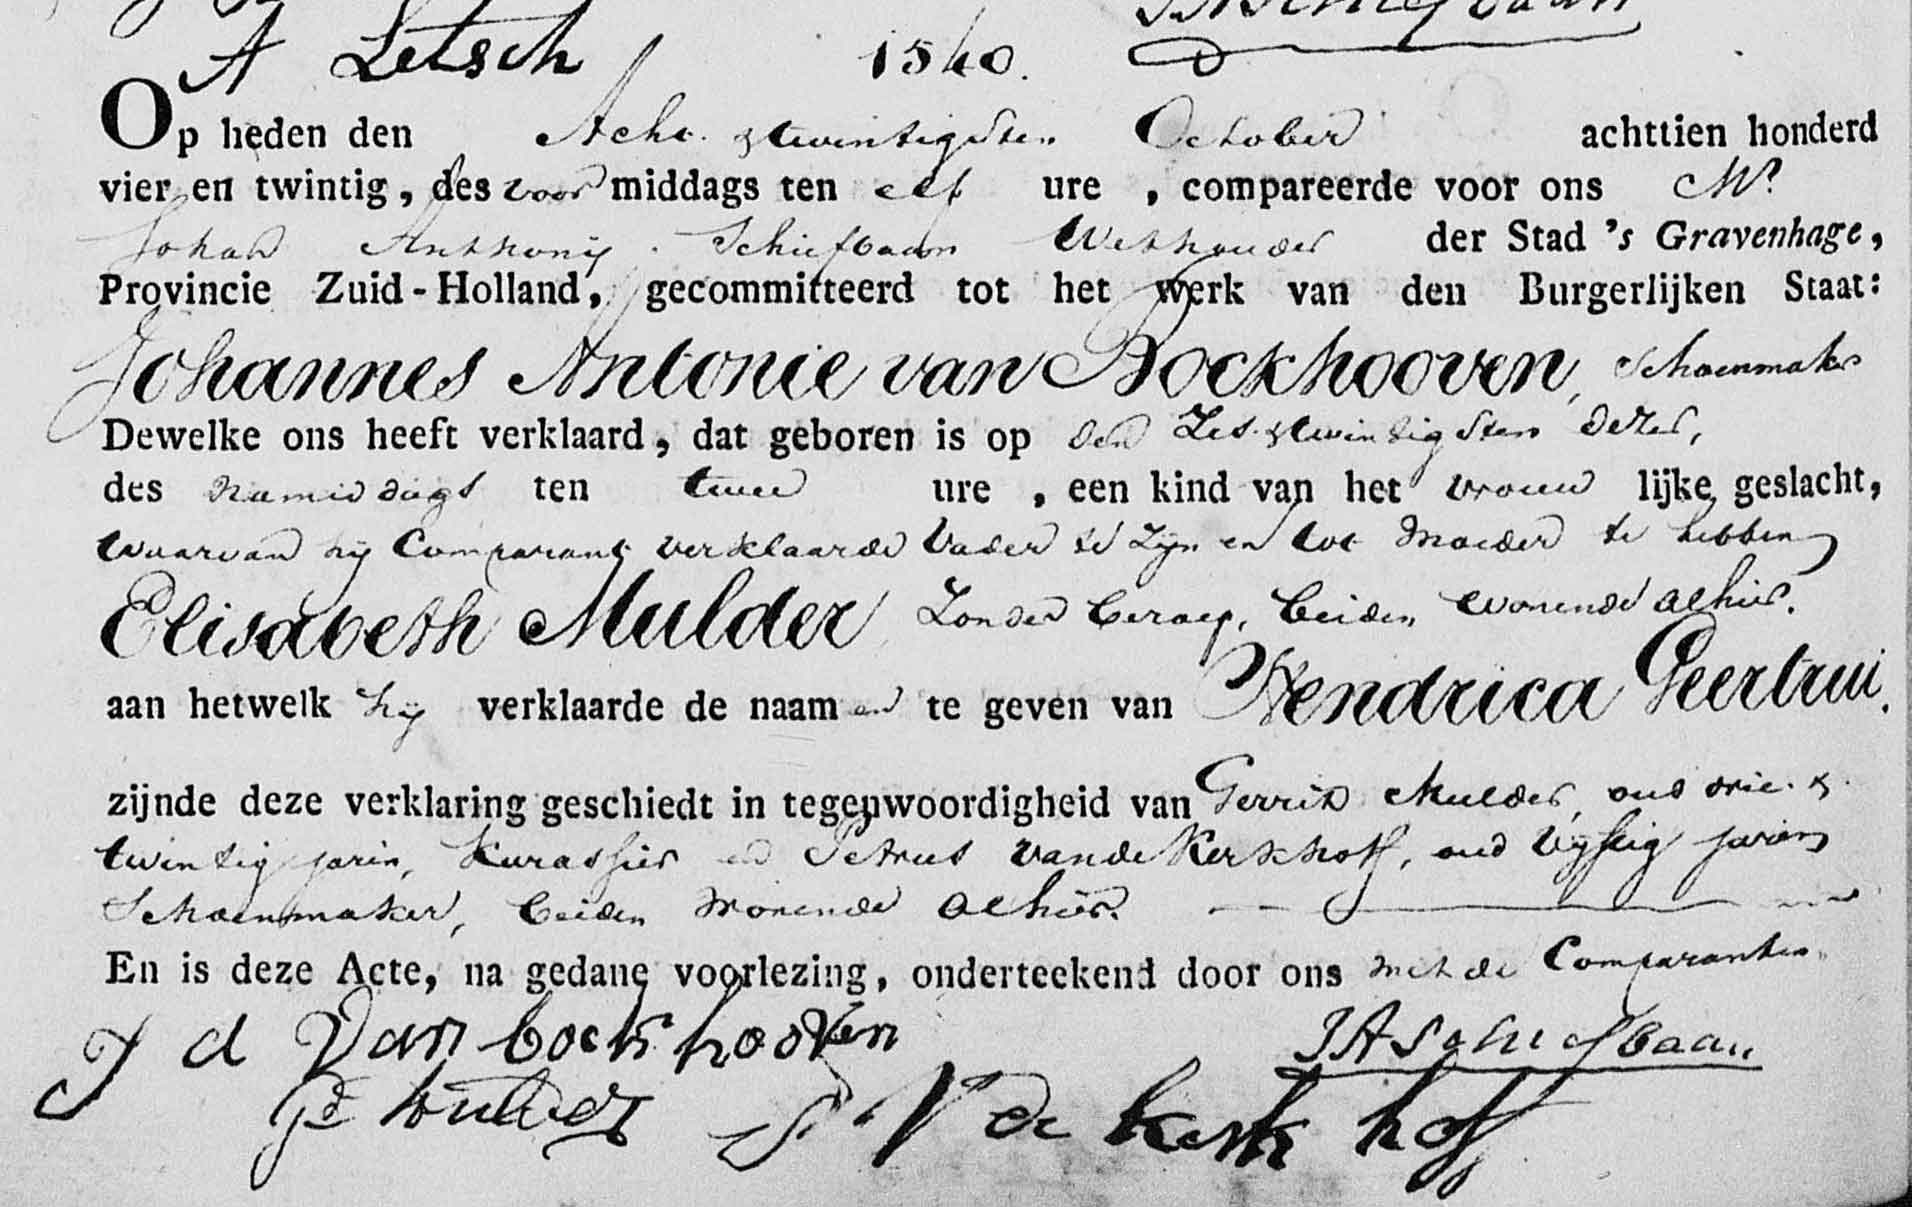 A Letsch 1540.
Op heden den Acht & twintigsten October achttien honderd
vier en twintig, des voor middags ten elf ure , compareerde voor ons Mr
Johan Anthonij Schiefbaan Wethouder der Stad 's Gravenhage,
Provincie Zuid-Holland, gecommitteerd tot het werk van den Burgerlijken Staat:
Johannes Antonie van Bockhooven, Schoenmaker
Dewelke ons heeft verklaard, dat geboren is op den Zes & twintigsten dezer,
des namiddags ten twee ure , een kind van het vrouw lijke geslacht,
waarvan hij Comparant verklaarde Vader te Zijn en tot Moeder te hebben
Elisabeth Mulder Zonder beroep, beiden wonende alhier.
aan hetwelk hij verklaarde de naam en te geven van Hendrica Geertrui.
zijnde deze verklaring geschiedt in tegenwoordigheid van Gerrit Mulder, oud drie &
twintig jaren, Kurassier en Petrus van de Kerkhoff, oud vijftig jaren
Schoenmaker, beiden wonende alhier.
En is deze Acte, na gedane voorlezing, onderteekend door ons met de Comparanten
J d Van bockhooven JASchiefbaan
Gd Mulder P V de kerkhoff